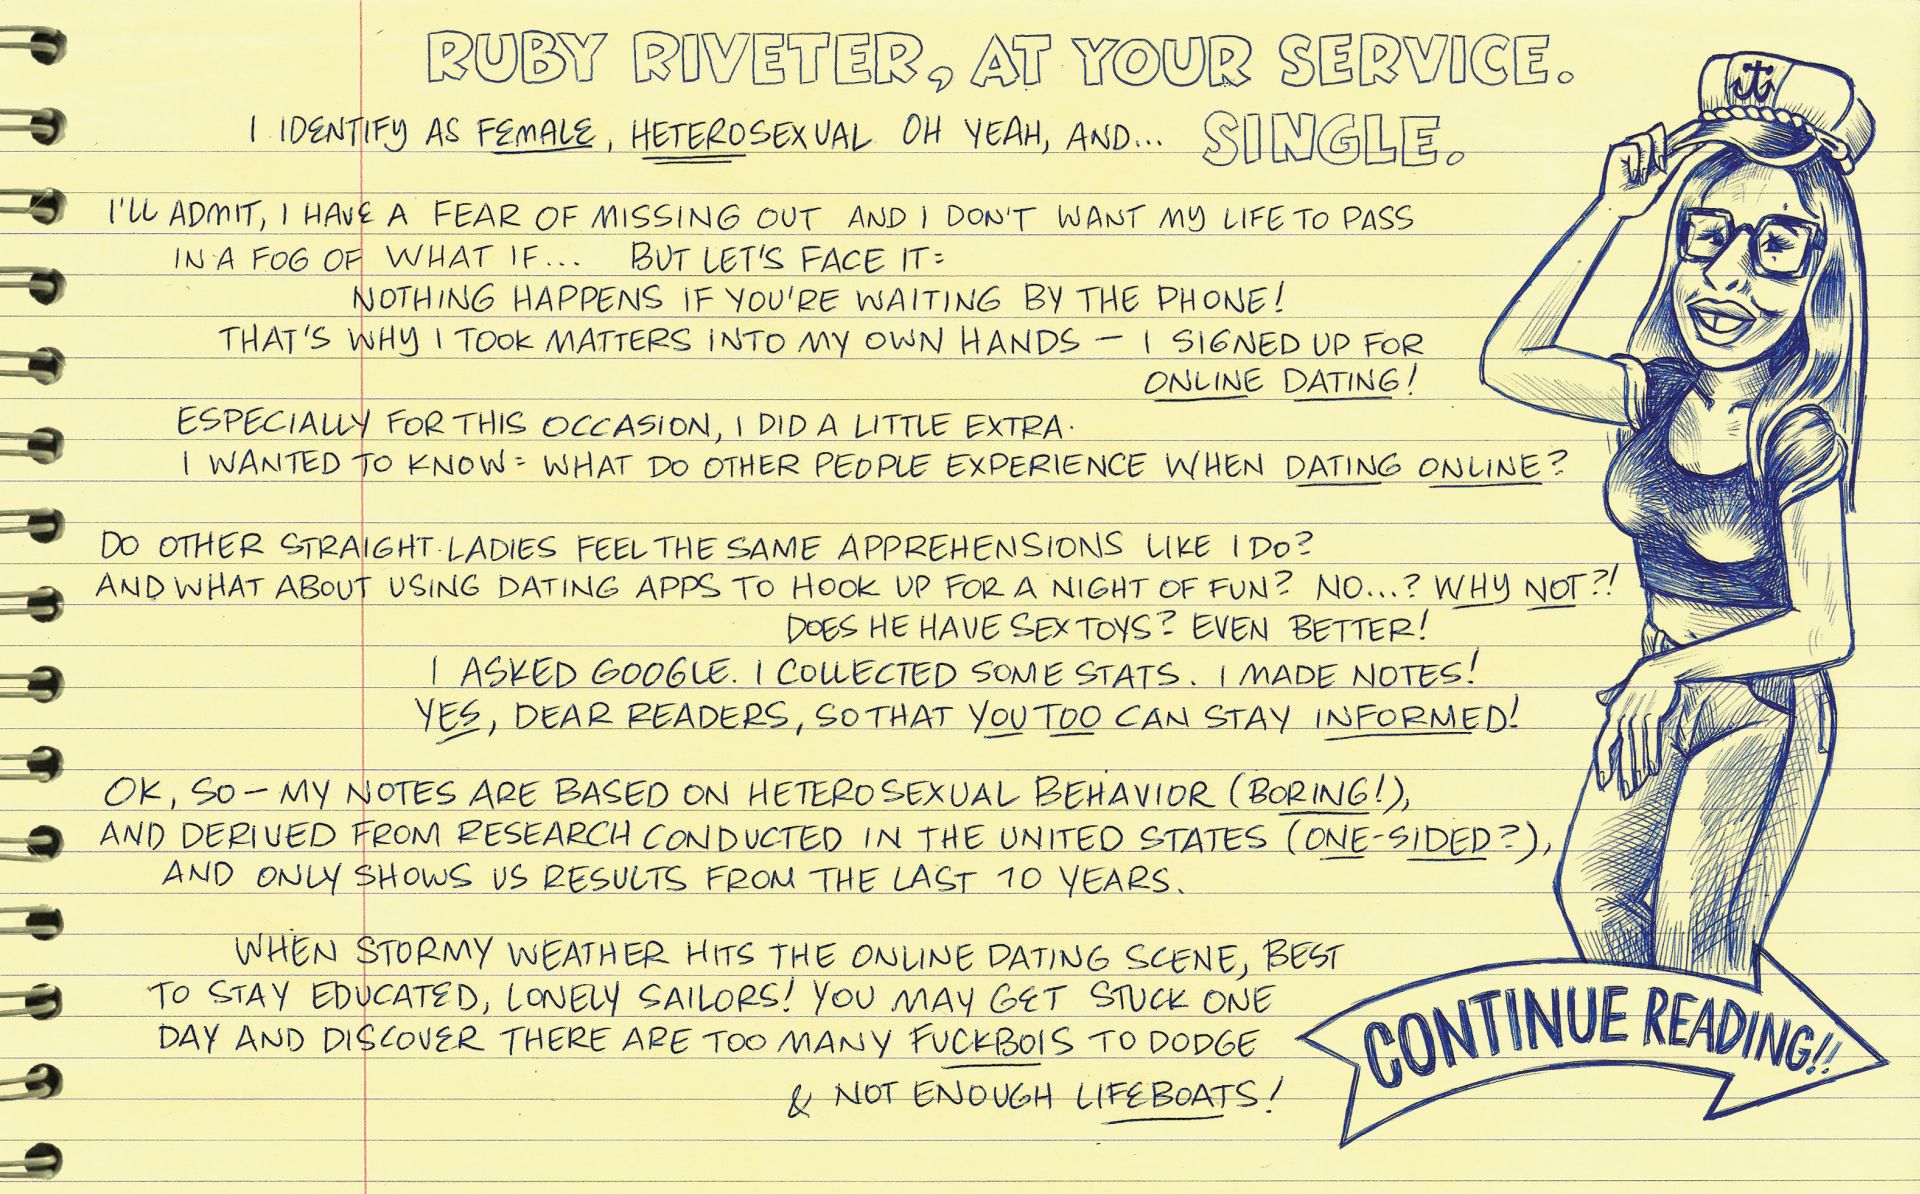 RUBY RIVETER, AT YOUR SERVICE.
I IDENTIFY AS FEMALE, HETEROSEXUAL. OH YEAH, AND... SINGLE.
I'LL ADMIT, I HAVE A FEAR OF MISSING OUT AND I DON'T WANT MY LIFE TO PASS
IN A FOG OF WHAT IF... BUT LET'S FACE IT:
NOTHING HAPPENS IF YOU'RE WAITING BY THE PHONE!
THAT'S WHY I TOOK MATTERS INTO MY OWN HANDS – I SIGNED UP FOR
ONLINE DATING!
ESPECIALLY FOR THIS OCCASION, I DID A LITTLE EXTRA.
I WANTED TO KNOW: WHAT DO OTHER PEOPLE EXPERIENCE WHEN DATING ONLINE?
DO OTHER STRAIGHT LADIES FEEL THE SAME APPREHENSIONS LIKE I DO?
AND WHAT ABOUT USING DATING APPS TO HOOK UP FOR A NIGHT OF FUN? NO...? WHY NOT?!
DOES HE HAVE SEX TOYS? EVEN BETTER!
I ASKED GOOGLE. I COLLECTED SOME STATS. I MADE NOTES!
YES, DEAR READERS, SO THAT YOU TOO CAN STAY INFORMED!
OK, SO – MY NOTES ARE BASED ON HETEROSEXUAL BEHAVIOR (BORING!),
AND DERIVED FROM RESEARCH CONDUCTED IN THE UNITED STATES (ONE-SIDED?),
AND ONLY SHOWS US RESULTS FROM THE LAST 10 YEARS.
WHEN STORMY WEATHER HITS THE ONLINE DATING SCENE, BEST
TO STAY EDUCATED, LONELY SAILORS! YOU MAY GET STUCK ONE
DAY AND DISCOVER THERE ARE TOO MANY FUCKBOIS TO DODGE
& NOT ENOUGH LIFEBOATS!
CONTINUE READING!!